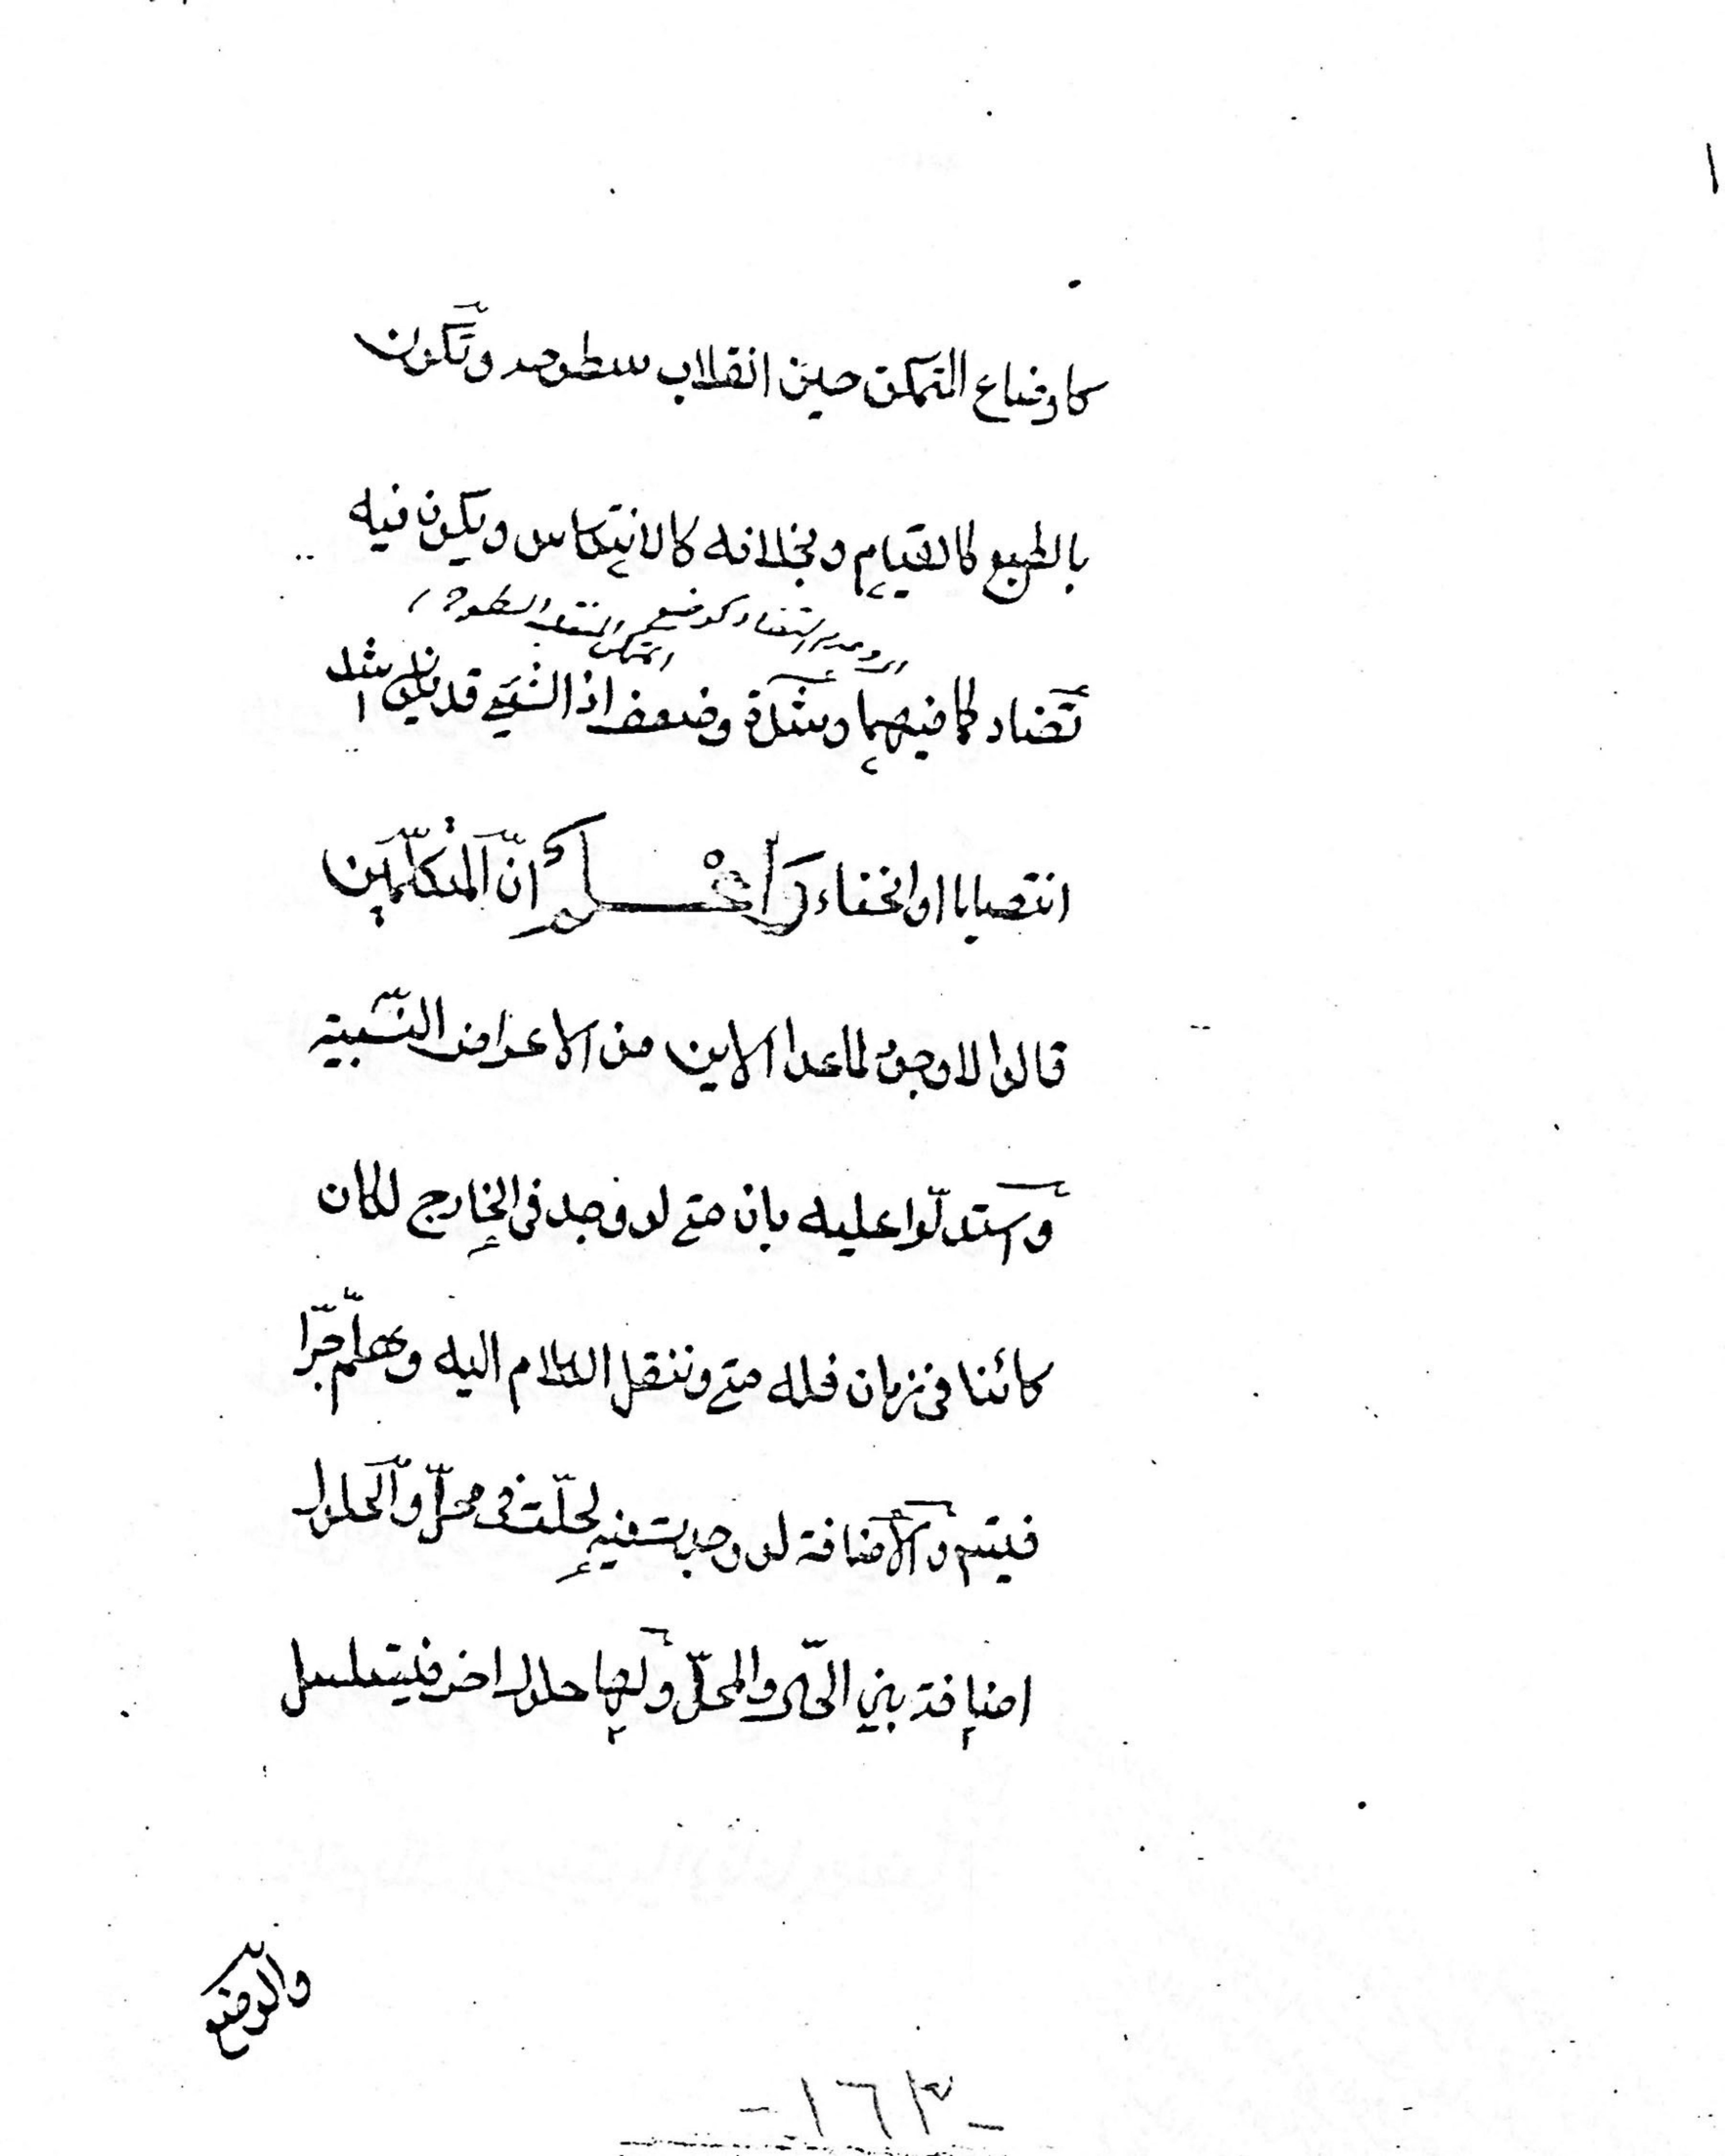 كاوضاع المتمكن حين انقلاب سطوحه وتكون
بالطبع كالقيام وبخلافه كالانتكاس ويكون فيه
تضاد كما فيهما وشدة وضعف اذ الشيئ قد يكون اشد
انتصابا او انحناء وَاعْلَمْ انّ المتكلّمين
قالوا لا وجود لما عدا الاين من الاعراض النّسبية
واستدلّوا عليه بان متى لو وجد في الخارج لكان
كائنا في زمان فله متى وننقل الكلام اليه وهلّم جرّا
فيتسلسل والاضافة لو وجدت فيه لحلّت في محلّ والحلول
اضافة بين الحالّ والمحلّ ولها حلول اخر فيتسلسل
والوضع
-١٦٣-